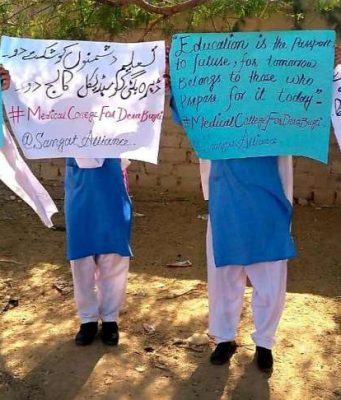 تعلیم دشمنوں کو شکست دو
ڈیرہ بگٹی کو میڈیکل کالج دو
#Medical College For Dera Bugti
@Sangat Alliance
"Education is the Passport
to future, for tomorrow
belongs to those who
Prepare for it today"
#Medical College For Dera Bugti
Sangat Alliance